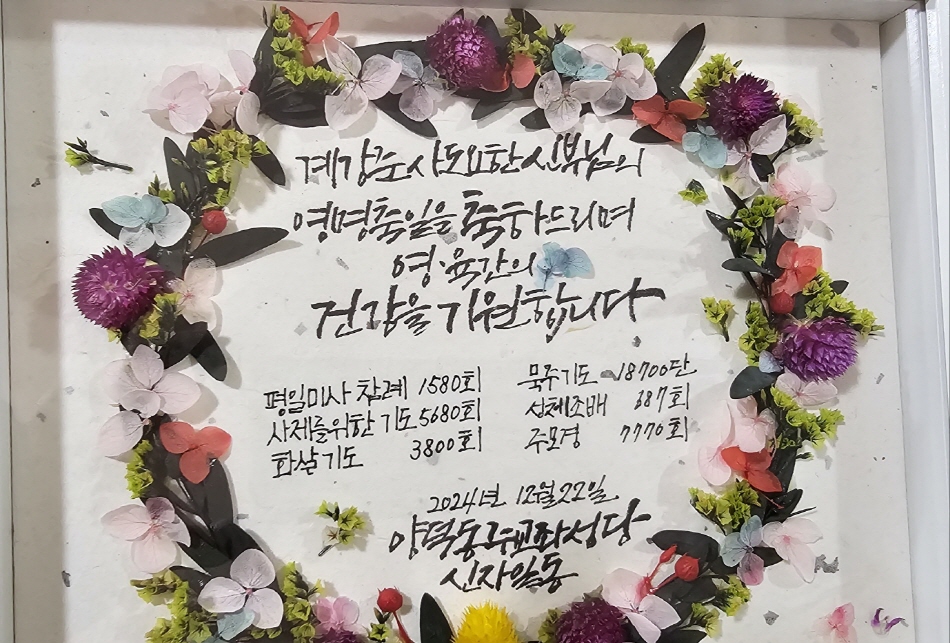 계강준 사도요한 신부님의
영명축일을 축하드리며
영·육간의
건강을 기원합니다
평일미사 참례 1580회
사제를위한 기도 5680회
화살기도 3800회
묵주기도 18700단
성체조배 687회
주모경 7770회
2024년 12월 22일
양덕동 주교좌성당
신자일동